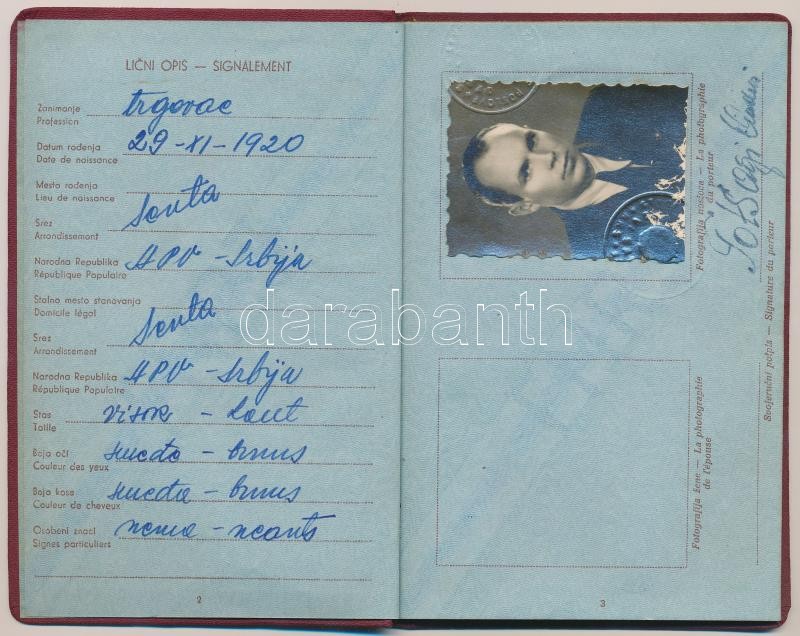 LIČNI OPIS — SIGNALEMENT
Zanimanje
Profession
trgovac
Datum rođenja
Date de naissance
29-XI-1920
Mesto rođenja
Lieu de naissance
Senta
Srez
Arrondissement
Narodna Republika
République Populaire
APV - Srbija
Stalno mesto stanovanja
Domicile légal
Senta
Srez
Arrondissement
Narodna Republika
République Populaire
APV - Srbija
Stas
Taille
visok -
Boja očî
Couleur des yeux
smeđe - bruns
Boja kose
Couleur de cheveux
smeđa - bruns
Osobeni znaci
Signes particuliers
nema - neants
2
Fotografija nosioca — La photographie
du porteur
Fotografija žene — La photographie
de l'épouse
Svojeručni potpis — Signature du porteur
3
darabanth